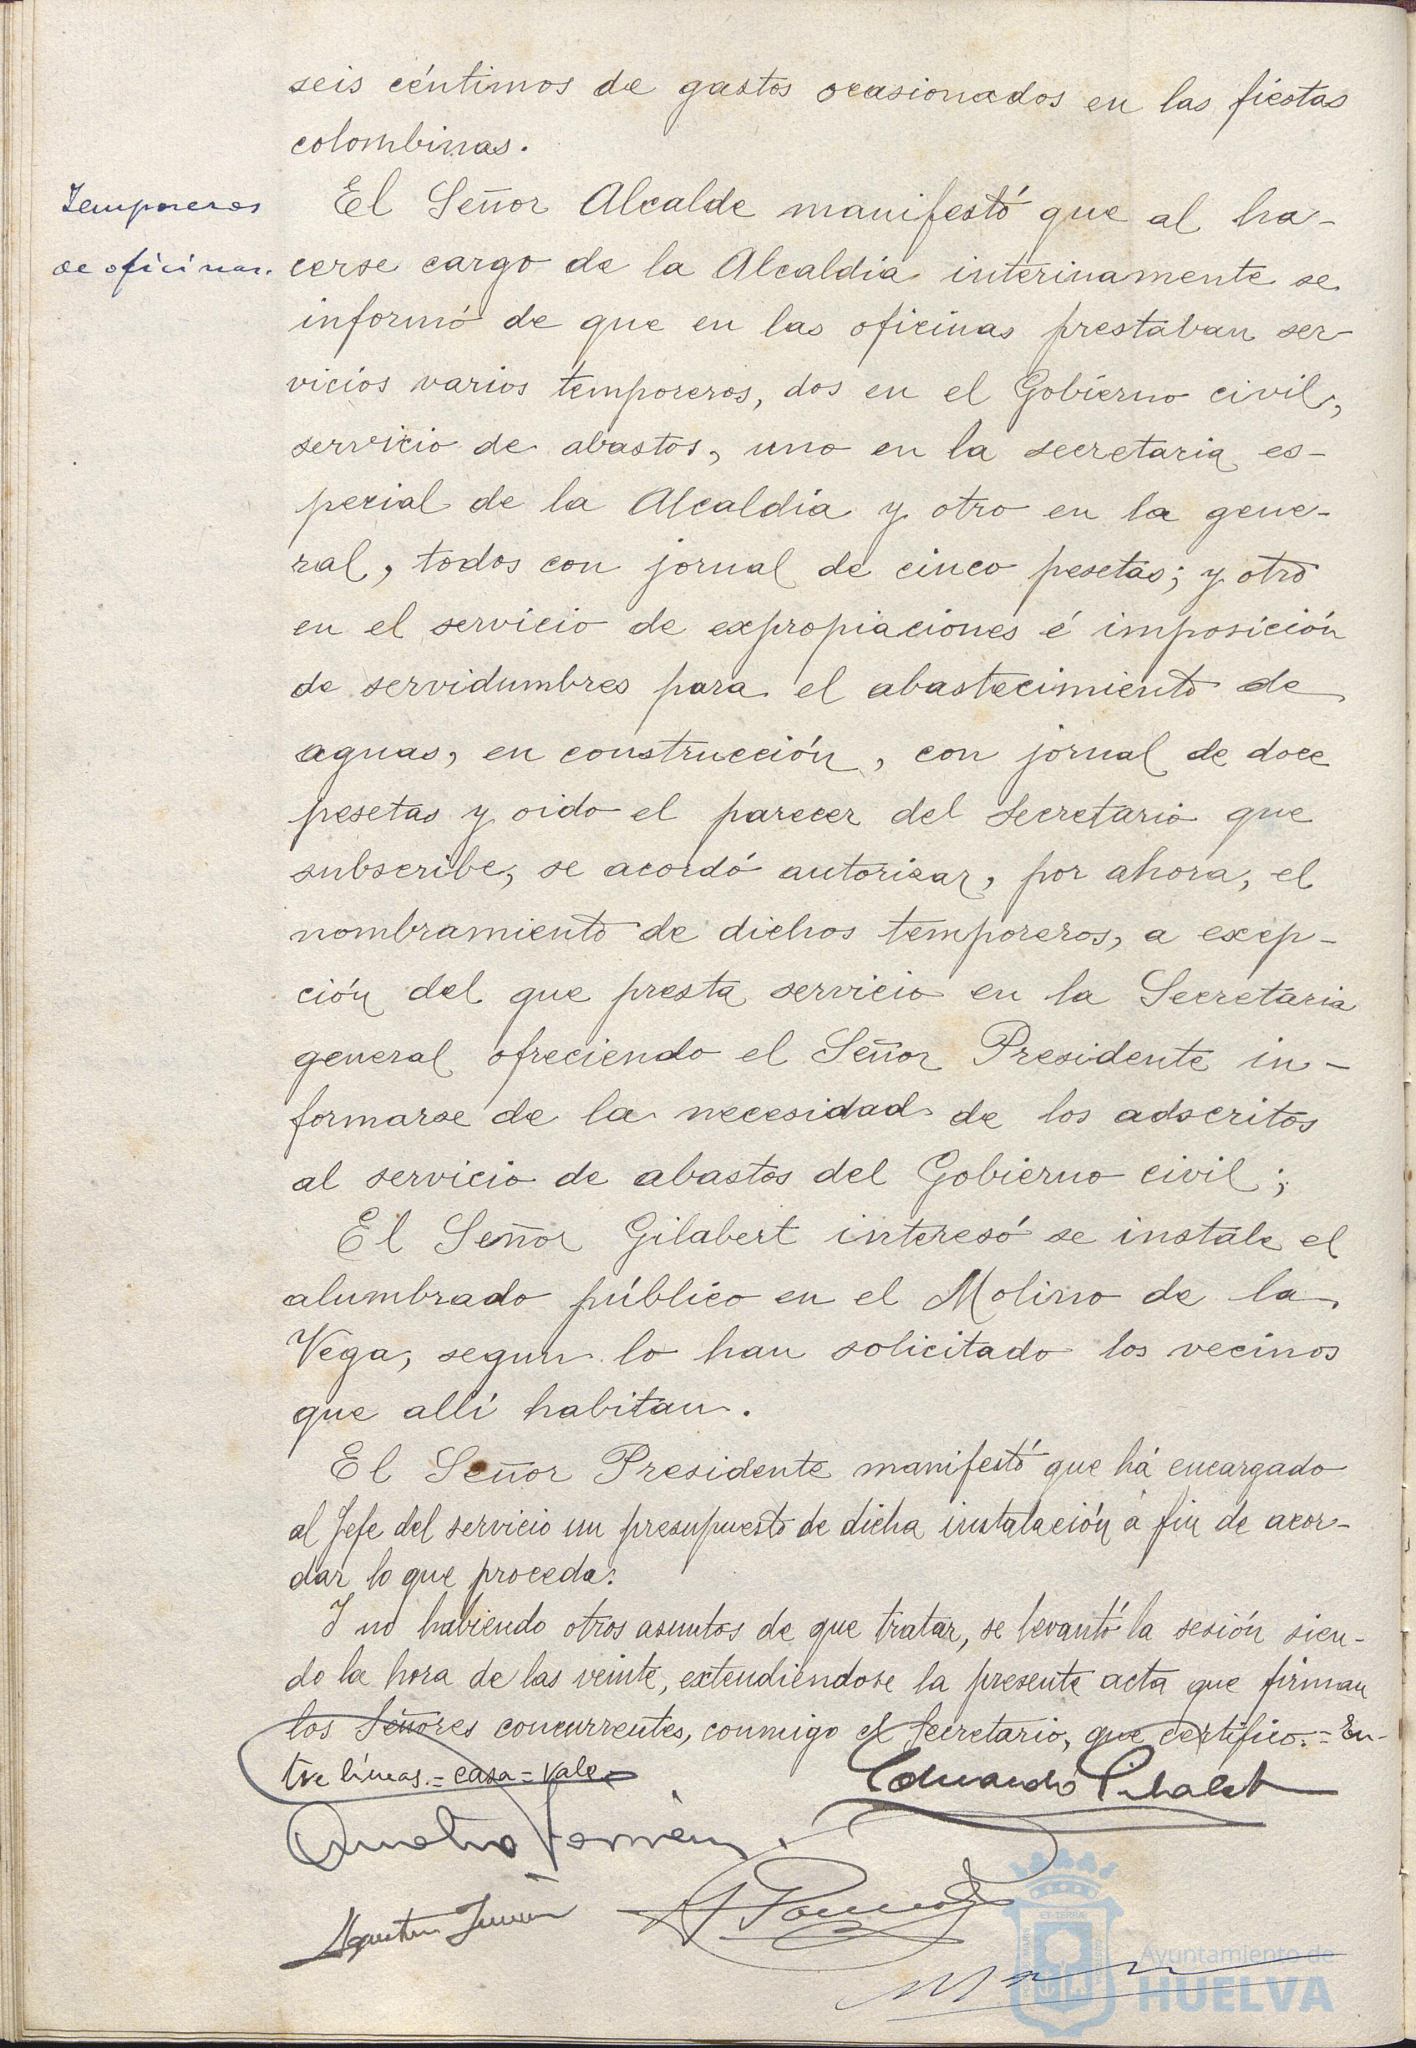 seis céntimos de gastos ocasionados en las fiestas
colombinas.
Temporeros
de oficinas.
El Señor Alcalde manifestó que al ha-
cerse cargo de la Alcaldía interinamente se
informó de que en las oficinas prestaban ser-
vicios varios temporeros, dos en el Gobierno civil,
servicio de abastos, uno en la secretaria es-
pecial de la Alcaldía y otro en la gene-
ral, todos con jornal de cinco pesetas; y otro
en el servicio de expropiaciones é imposición
de servidumbres para el abastecimiento de
aguas, en construcción, con jornal de doce
pesetas y oido el parecer del Secretario que
subscribe, se acordó autorizar, por ahora, el
nombramiento de dichos temporeros, a exep-
ción del que presta servicio en la Secretaria
general ofreciendo el Señor Presidente in-
formarse de la necesidad de los adscritos
al servicio de abastos del Gobierno civil;
El Señor Gilabert interesó se instale el
alumbrado público en el Molino de la
Vega, segun lo han solicitado los vecinos
que allí habitan.
El Señor Presidente manifestó que há encargado
al Jefe del servicio un presupuesto de dicha instalación á fin de acor-
dar lo que proceda.
Y no habiendo otros asuntos de que tratar, se levantó la sesión sien-
do la hora de las veinte, extendiéndose la presente acta que firman
los Señores concurrentes, conmigo el Secretario, que certifico.=En-
tre líneas.=casa=vale.
Eduardo
Agustin
Ayuntamiento de
HUELVA